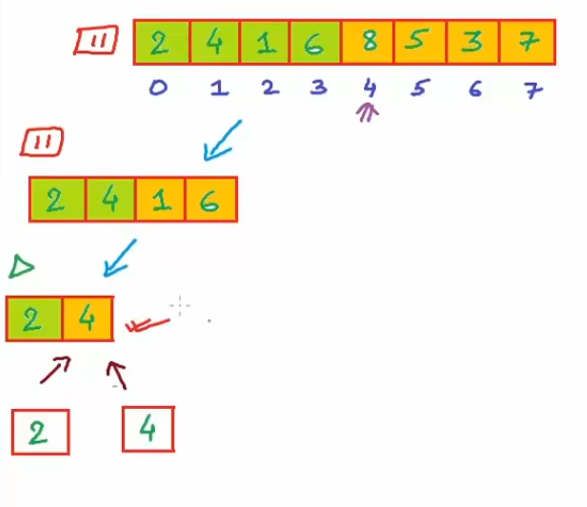 2 4 1 6 8 5 3 7
0 1 2 3 4 5 6 7
2 4 1 6
2 4
2 4